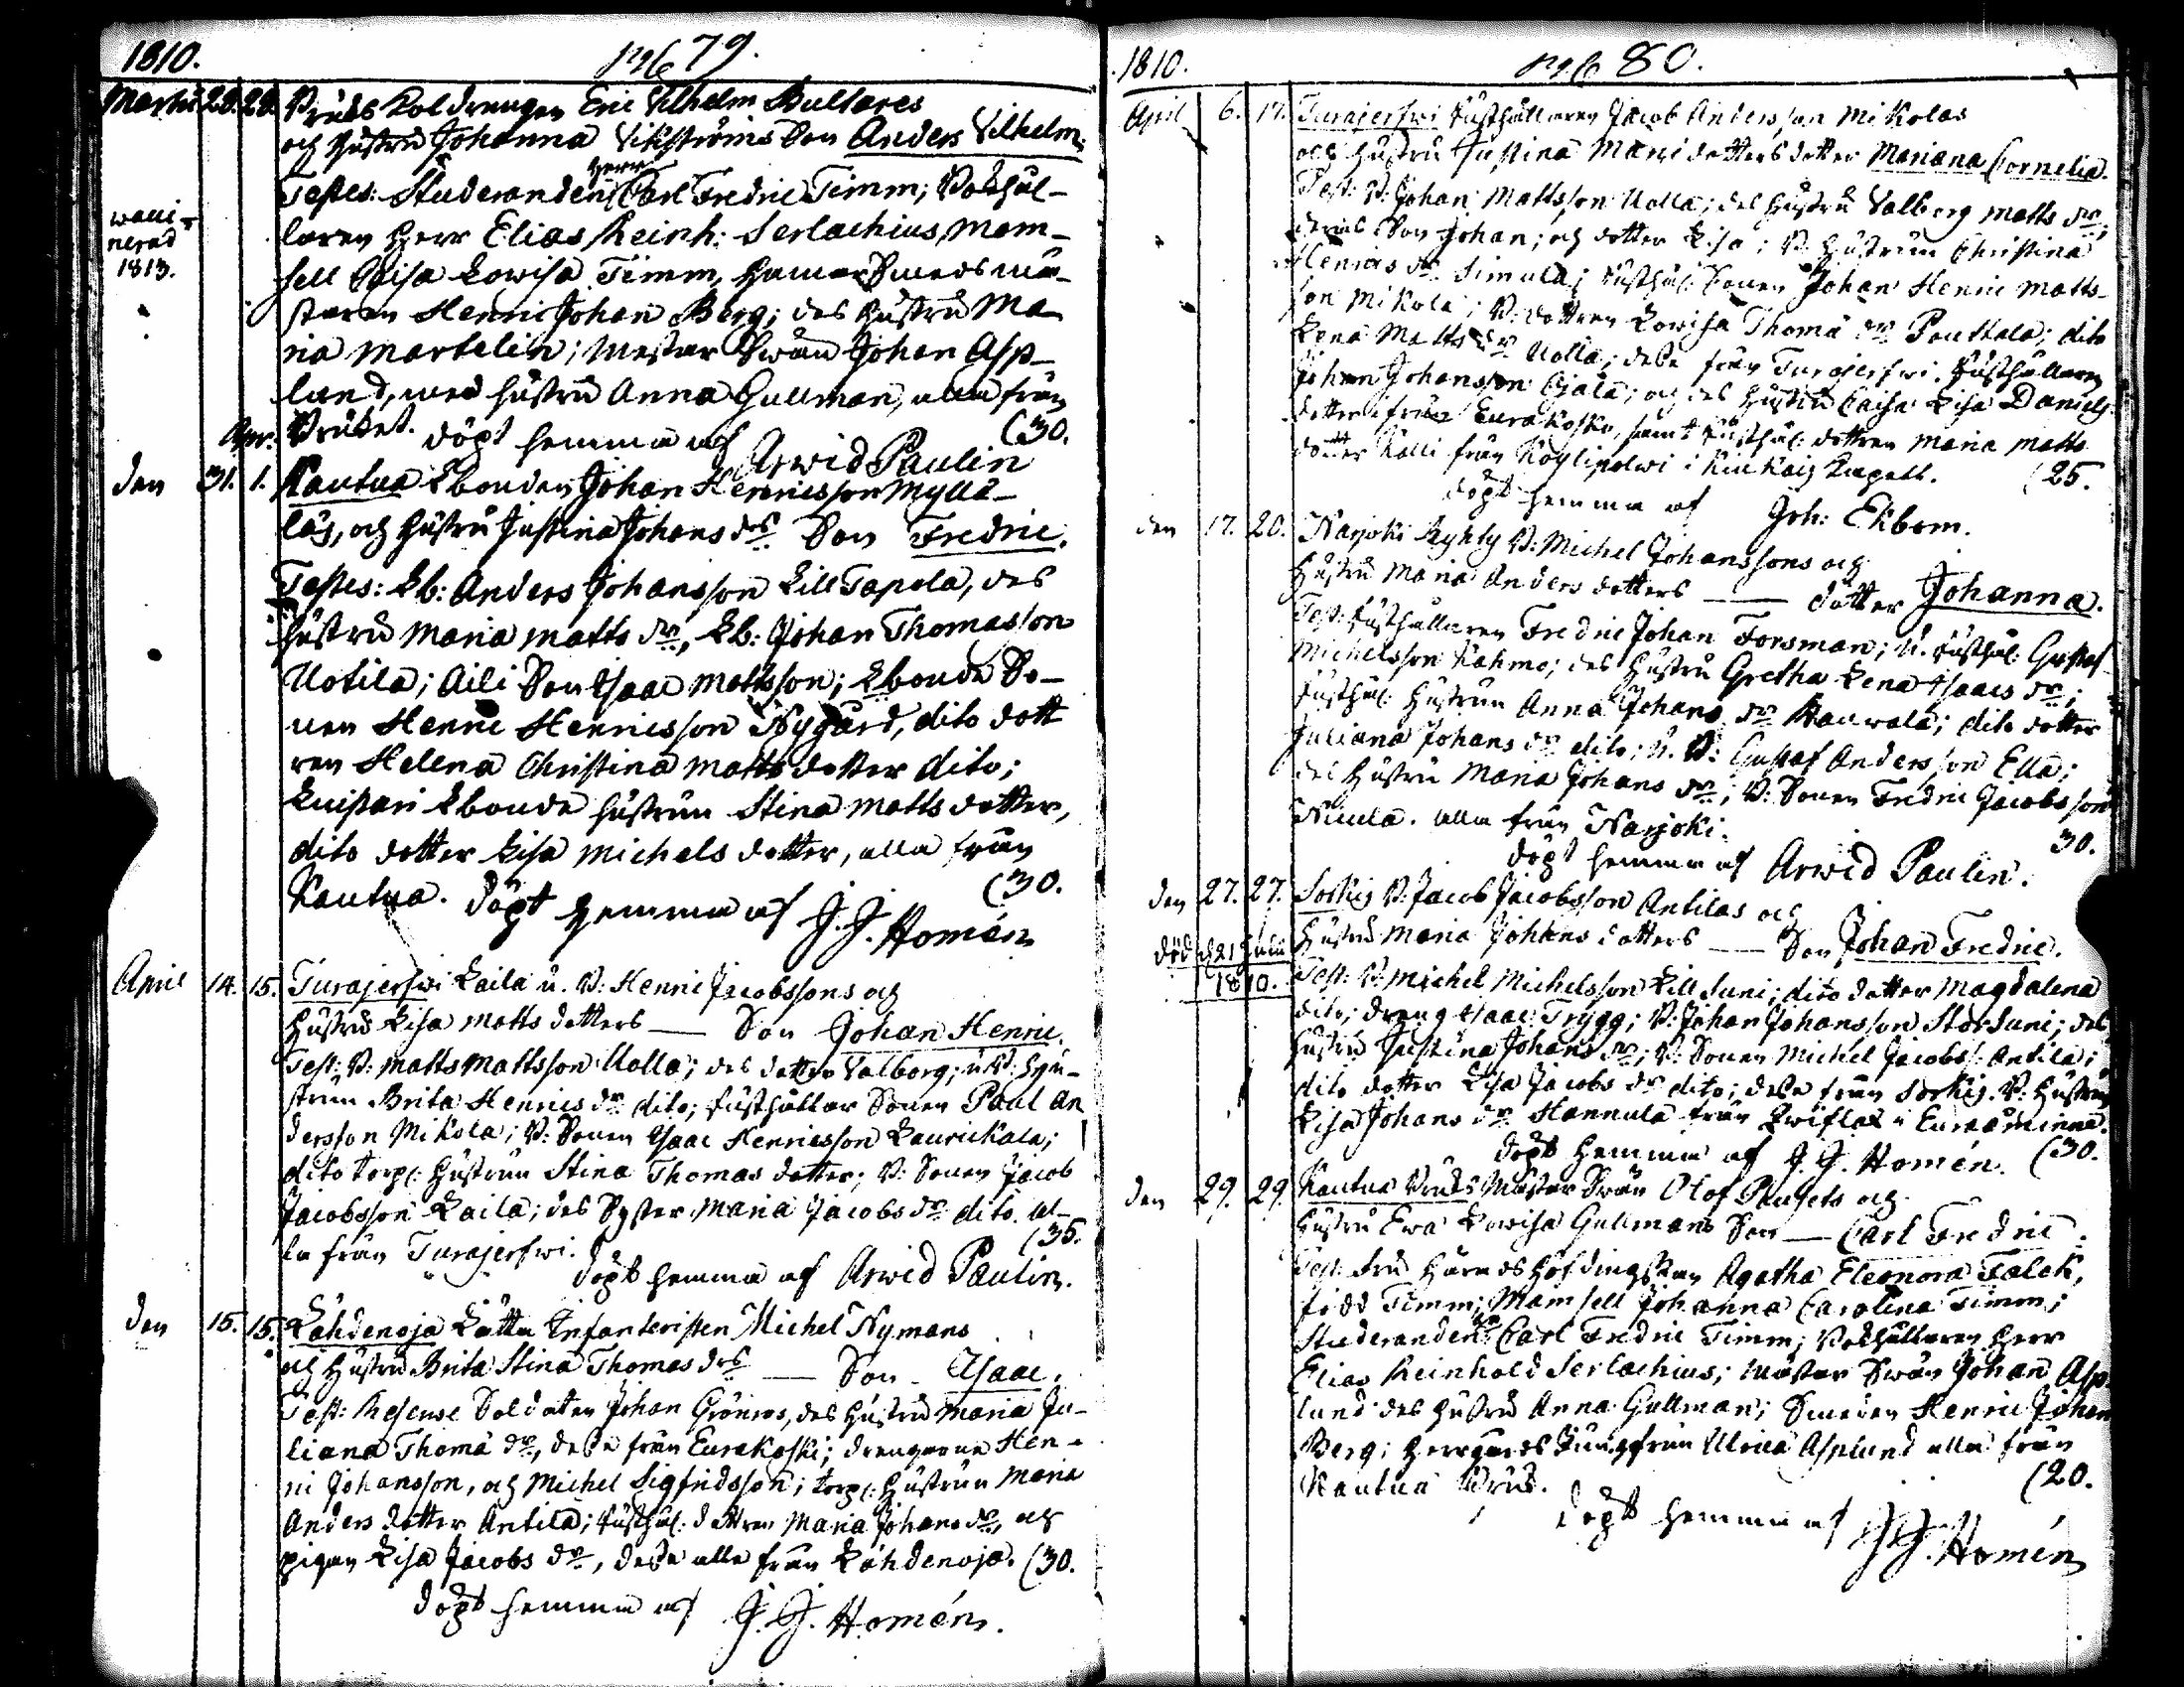 1810.
pag 79.
Martii 28. 28. Bruks Koldrengen Eric Vilhelm Bultares
och hustru Johanna Vikströms Son Anders Vilhelm.
Testes: Studeranden Herr Carl Fredric Timm; Bokhål-
laren Herr Elias Reinh: Serlachius, Mam-
vacci-
nerad
1813.
sell Caisa Lowisa Timm, Hamarsmeds mä-
staren Henric Johan Berg; des hustru Ma-
ria Martelin; Mästar Swän Johan Asp-
lund, med hustru Anna Gullman, alla från
Bruket. döpt hemma af Arwid Paulin (30.
Apr:
den 31. 1. Kautua Lbonden Johan Henricsson Myllä-
läs, och hustru Justina Johans drs Son Fredric.
Testes: Lb: Anders Johansson Lill Tapola, des
hustru Maria Matts dr, Lb: Johan Thomasson
Uotila; Aili Son Isaac Mattsson; Lbonde So-
nen Henric Henricsson Nygård, dito dott
ren Helena Christina Matts dotter dito;
Knispari Lbonde hustrun Stina Matts dotter,
dito dotter Lisa Michels dotter, alla från
Kautua. döpt hemma af J. J. Homén (30.
April 14. 15. Turajerfwi Laila u. B: Henric Jacobssons och
hustru Lisa Matts dotters — Son Johan Henric.
Test: B: Matts Mattsson Uolla; des dotter Valborg; u B: hyu-
strun Brita Henrics dr dito; Rusthållar Sonen Paul An
dersson Mikola; B: Sonen Isaac Henricsson Laurickala;
dito torp: hustrun Stina Thomas dotter; B: Sonen Jacob
Jacobsson Laila; des Syster Maria Jacobs dr dito. al-
la från Turajerfwi. (35.
döpt hemma af Arwid Paulin.
den 15. 15. Lähdenoja Lätta Infanteristen Michel Nymans
och hustru Brita Stina Thomas drs — Son - Isaac.
Test: Reserve Soldaten Johan Grönros, des hustru Maria Ju-
liana Thomä dr, desse från Eurakoski; drengarne Hen-
ric Johansson, och Michel Sigfridsson; torp: hustrun Maria
Anders dotter Antila; rusthål: dottren Maria Johans dr, och
pigan Lisa Jacobs dr, desse alla från Lähdenoja. (30.
döpt hemma af J. J. Homén.
1810.
pag 80.
April 6. 17. Turajerfwi Rusthållaren Jacob Andersson Mikolas
och hustru Justina Mariædotters dotter Mariana Cornelia.
Test: B: Johan Mattsson Uolla; des hustru Valborg Matts dr,
deras Son Johan; och dotter Lisa; B: hustrun Christina
Henrics dr Simula; rusthål: Sonen Johan Henric Matts-
son Mikola; B: dottren Lowisa Thomä dr Pouttala; dito
Lena Matts dr Uolla; desse från Turajerfwi. Rusthållaren
Johan Johansson Ojala; och des hustru Caisa Lisa Daniels
dotter från Eurakoski, samt rusthål: dottren Maria Matts
dotter Källi från Köylipolwi i Kiukais Capell. (25.
döpt hemma af Joh: Ekbom.
den 17. 20. Narjoki Ryhty B: Michel Johanssons och
hustru Maria Anders dotters — dotter Johanna.
Test: Rusthållaren Fredric Johan Forsman; u. rusthål: Gustaf
Michelsson Kahmo; des hustru Gretha Lena Isaacs dr;
rusthål: hustrun Anna Johans dr Hauwola; dito dotter
Juliana Johans dr dito; u. B: Gustaf Andersson Ella;
des hustru Maria Johans dr; B: Sonen Fredric Jacobsson
Niuula. alla från Narjoki. 30.
döpt hemma af Arwid Paulin.
den 27. 27. Sorkis B: Jacob Jacobsson Antilas och
hustru Maria Johans dotters — Son Johan Fredric.
död d. 21 Julii
1810.
Test: B: Michel Michelsson Lill Suni; dito dotter Magdalena
dito; dreng Isaac Trygg; B: Johan Johansson Stor Suni; des
hustru Justina Johans dr; B: Sonen Michel Jacobss: Antila;
dito dotter Lisa Jacobs dr dito; desse från Sorkis. B: hustrun
Lisa Johans dr Hannula från Lwiflax i Euraåminne.
döpt hemma af J. J. Homén. (30.
den 29. 29. Kautua Bruks Mästar Swän Olof Paugets och
hustru Ewa Lowisa Gullmans Son — Carl Fredric.
Test: Fru Häradshöfdingskan Agatha Eleonora Falck,
född Timm; Mamsell Johanna Carolina Timm;
Studeranden Carl Fredric Timm; Bokhållaren Herr
Elias Reinhold Serlachius; Mästar Swän Johan Asp-
lund des hustru Anna Gullman; Smeden Henric Johan
Berg; Herrgårds Jungfrun Ulrica Asplund alla från
Kautua Bruk. (20.
döpt hemma af J. J. Homén